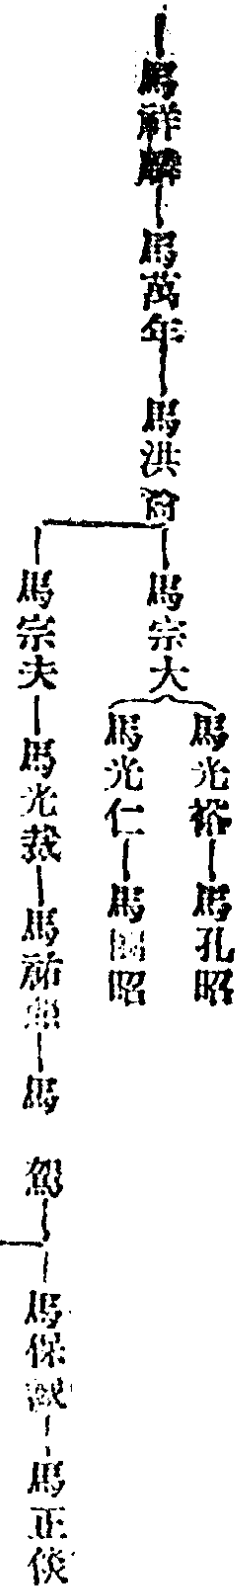 馬祥麟
馬萬年
馬洪裔
馬宗大
馬光裕
馬孔昭
馬光仁
馬國昭
馬宗夫
馬光裁
馬祐昭
馬 駕
馬保
馬正倓